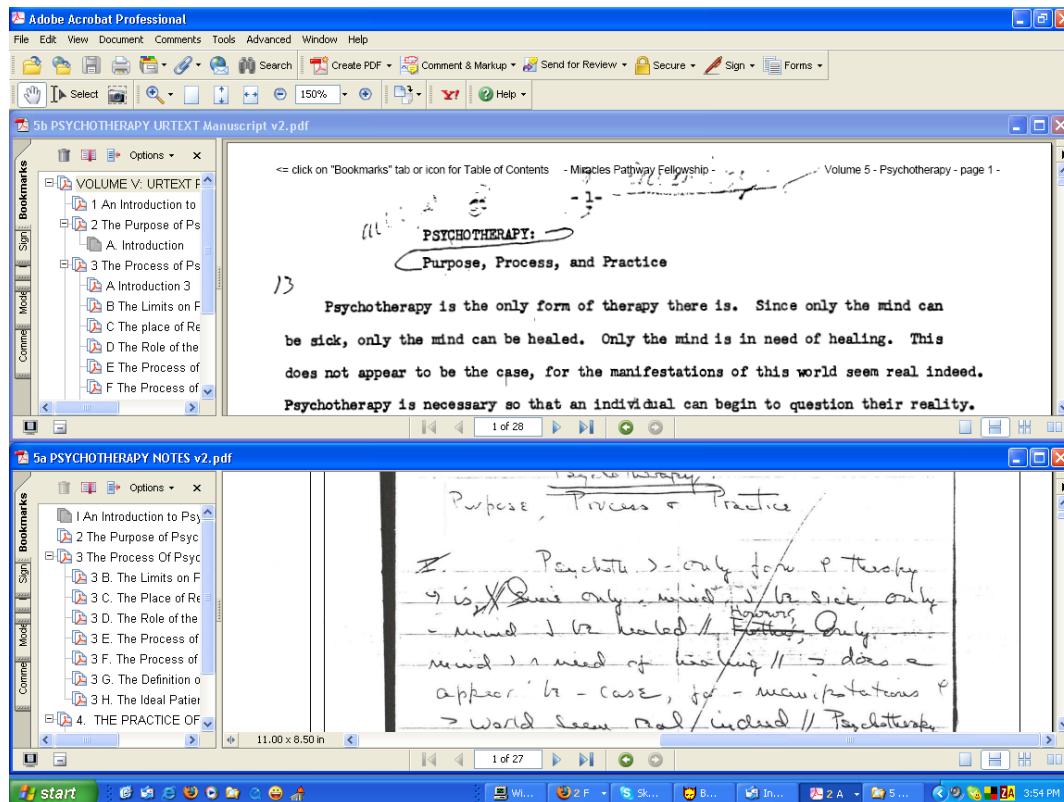 Adobe Acrobat Professional
File Edit View Document Comments Tools Advanced Window Help
Search Create PDF Comment & Markup Send for Review Secure Sign Forms
Select 150% Y! Help
5b PSYCHOTHERAPY URTEXT Manuscript v2.pdf
Options x
Bookmarks
Sign
Mode
Comme
VOLUME V: URTEXT F
1 An Introduction to
2 The Purpose of Ps
A. Introduction
3 The Process of Ps
A Introduction 3
B The Limits on F
C The place of Re
D The Role of the
E The Process of
F The Process of
<= click on "Bookmarks" tab or icon for Table of Contents - Miracles Pathway Fellowship - Volume 5 - Psychotherapy - page 1 -
-1-
PSYCHOTHERAPY:
Purpose, Process, and Practice
13
Psychotherapy is the only form of therapy there is. Since only the mind can
be sick, only the mind can be healed. Only the mind is in need of healing. This
does not appear to be the case, for the manifestations of this world seem real indeed.
Psychotherapy is necessary so that an individual can begin to question their reality.
1 of 28
5a PSYCHOTHERAPY NOTES v2.pdf
Options x
Bookmarks
Sign
Mode
Comme
I An Introduction to Psy
2 The Purpose of Psyc
3 The Process Of Psyc
3 B. The Limits on F
3 C. The Place of Re
3 D. The Role of the
3 E. The Process of
3 F. The Process of
3 G. The Definition o
3 H. The Ideal Patier
4. THE PRACTICE OF
Psychotherapy
Purpose, Process & Practice
I. Psychoth - only form therapy
is Since only - mind be sick, only
- mind be healed // However, Only
mind need of healing // does
appear - case, for - manifestations
world seem real / indeed // Psychotherapy
11.00 x 8.50 in
1 of 27
start Wi... 2 F Sk... B... In... 2 A 5 ... ZA 3:54 PM